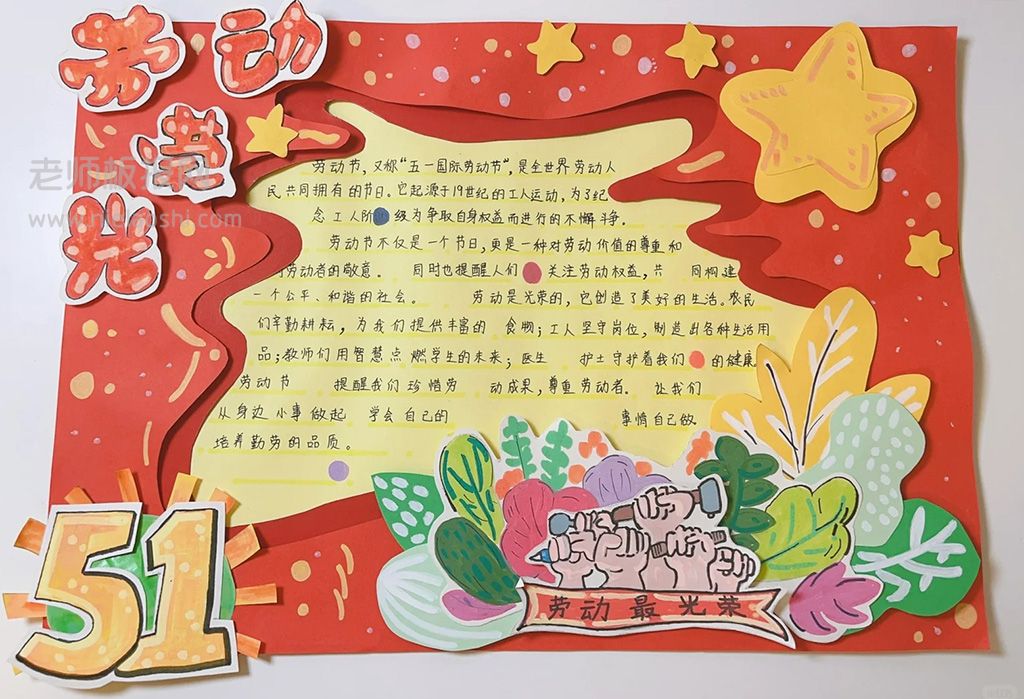 劳动
荣
光
老师板报网
劳动节，又称“五一国际劳动节”，是全世界劳动人
民共同拥有的节日。它起源于19世纪的工人运动，为了纪
念工人阶级为争取自身权益而进行的不懈斗争。
劳动节不仅是一个节日，更是一种对劳动价值的尊重和
劳动者的敬意。 同时也提醒人们 关注劳动权益，共 同构建
一个公平、和谐的社会。 劳动是光荣的，它创造了美好的生活。农民
们辛勤耕耘，为我们提供丰富的 食物；工人坚守岗位，制造出各种生活用
品；教师们用智慧点燃学生的未来；医生 护士守护着我们 的健康
劳动节 提醒我们珍惜劳 动成果，尊重劳动者。 让我们
从身边小事做起 学会自己的 事情自己做
培养勤劳的品质。
51
劳动最光荣